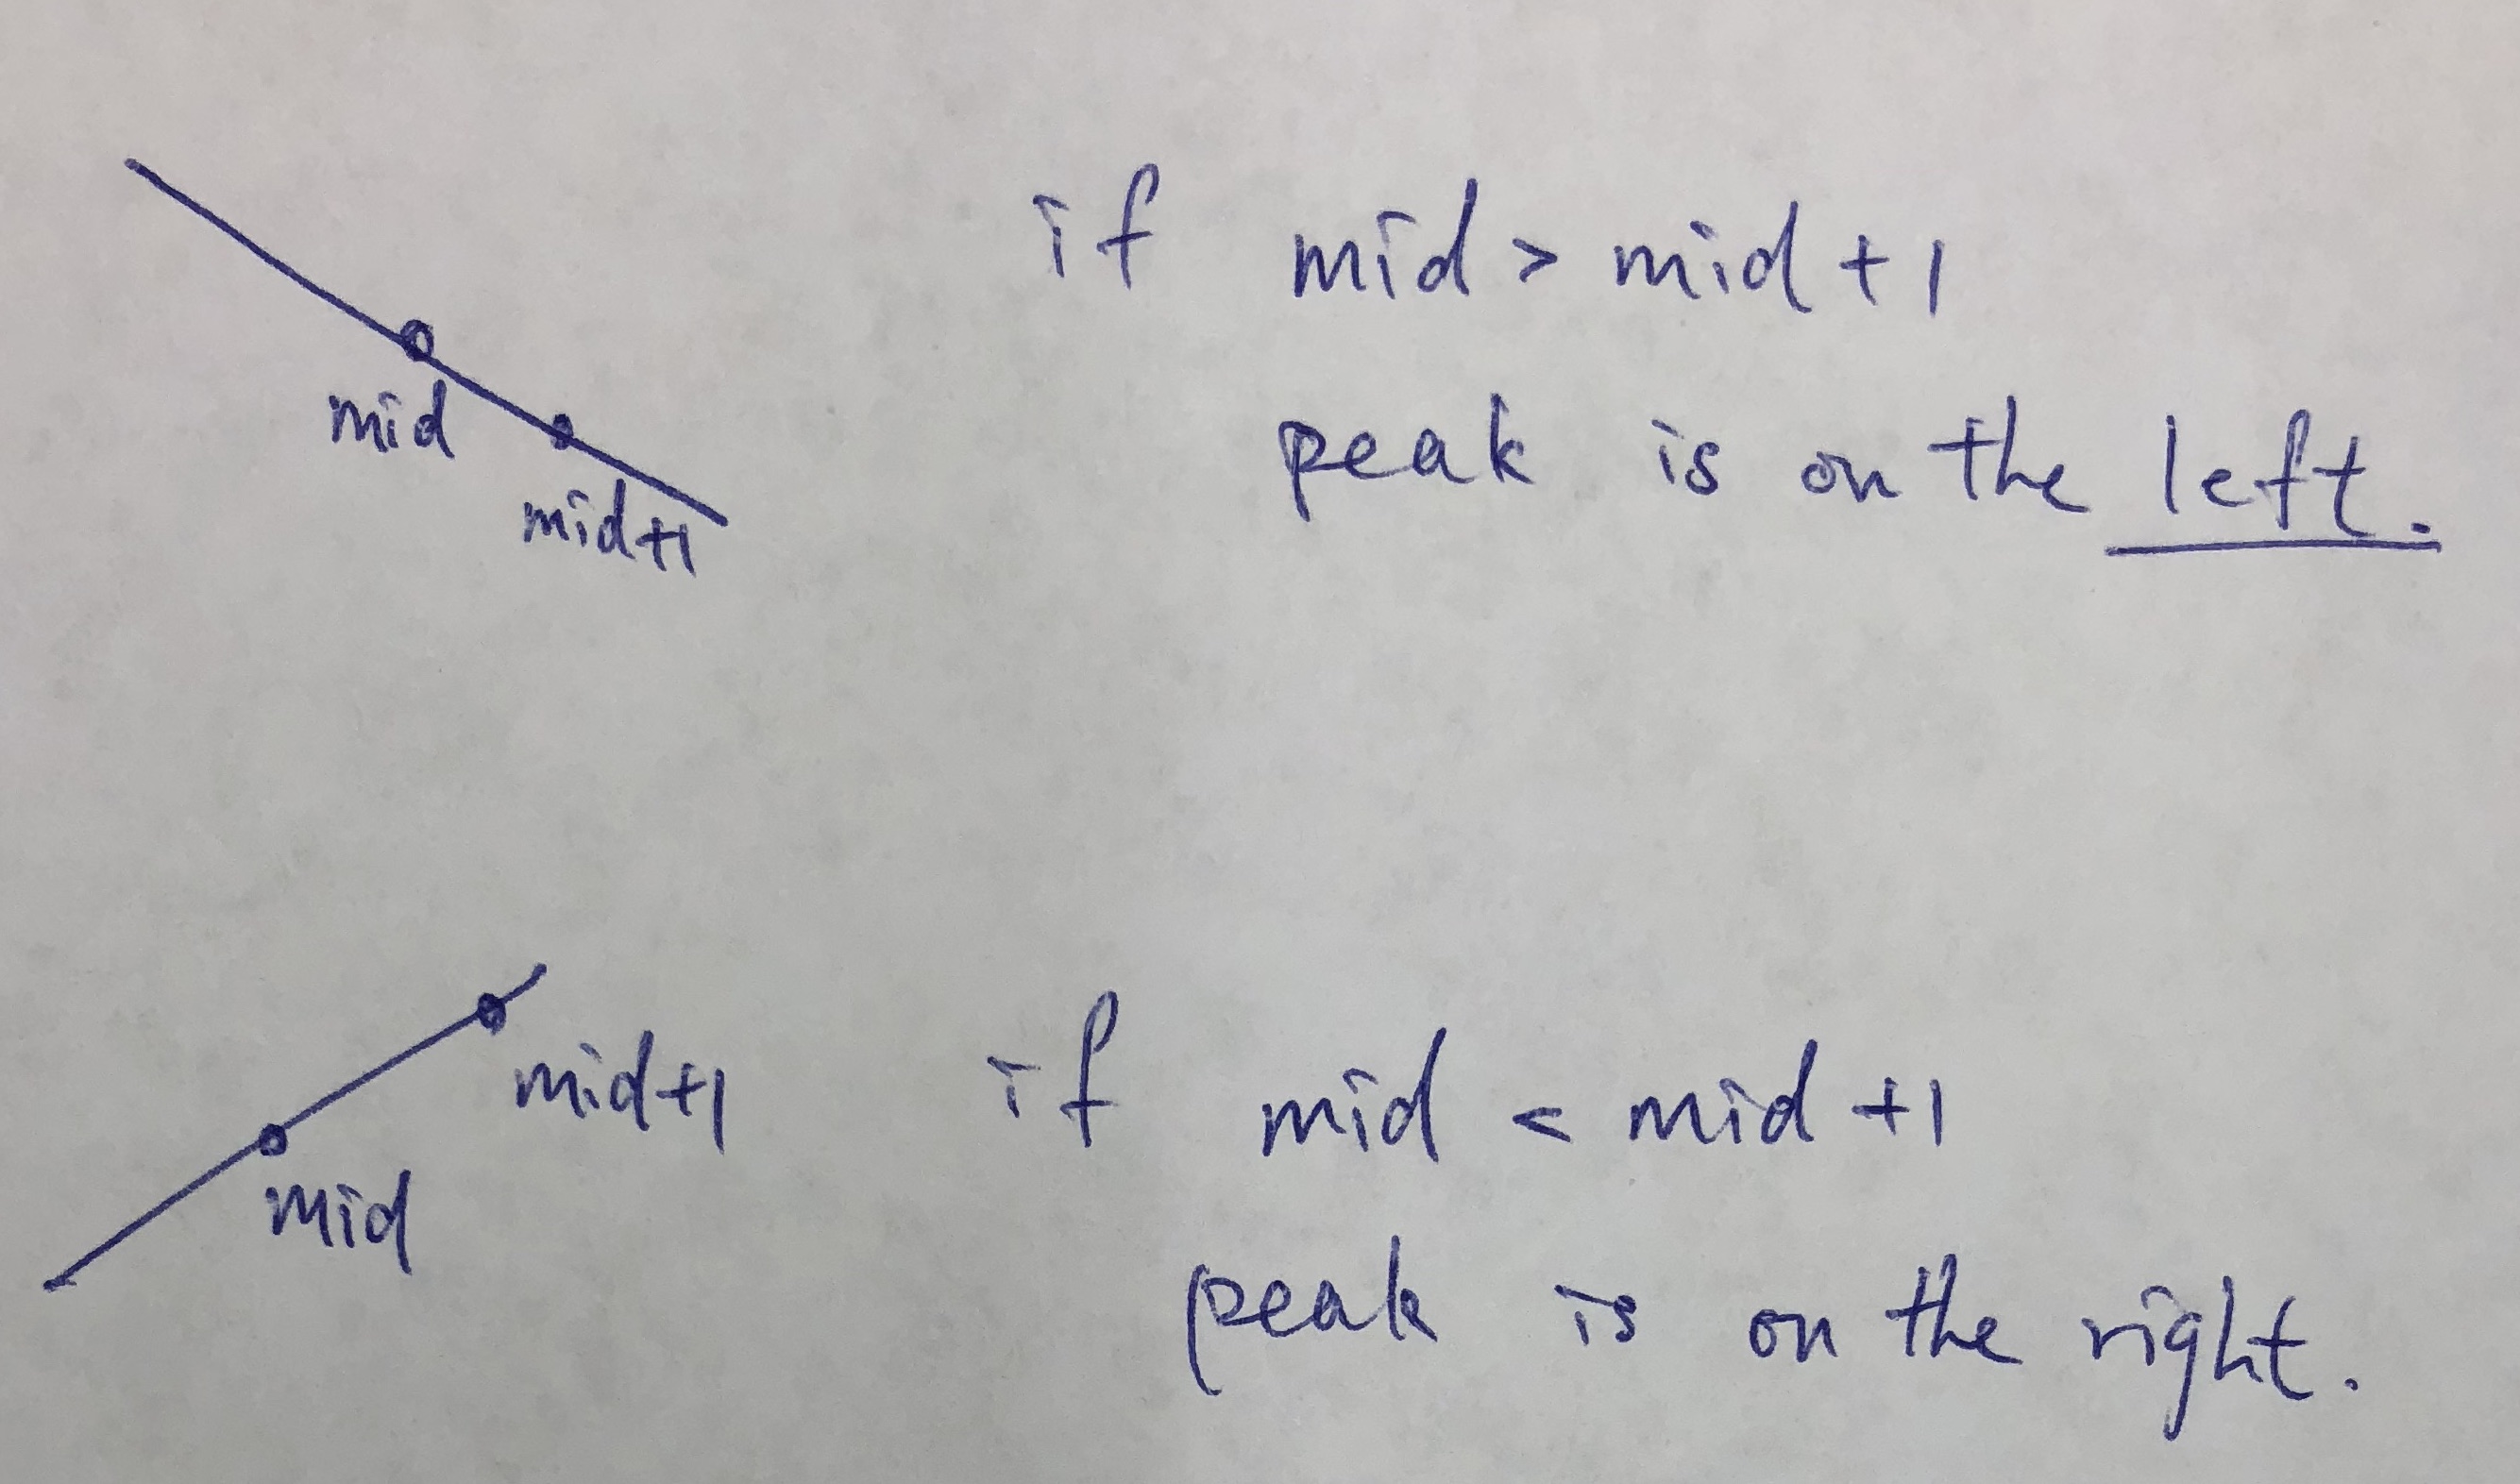 if mid > mid + 1
mid
peak is on the left.
mid+1
mid+1
if mid < mid + 1
mid
peak is on the right.